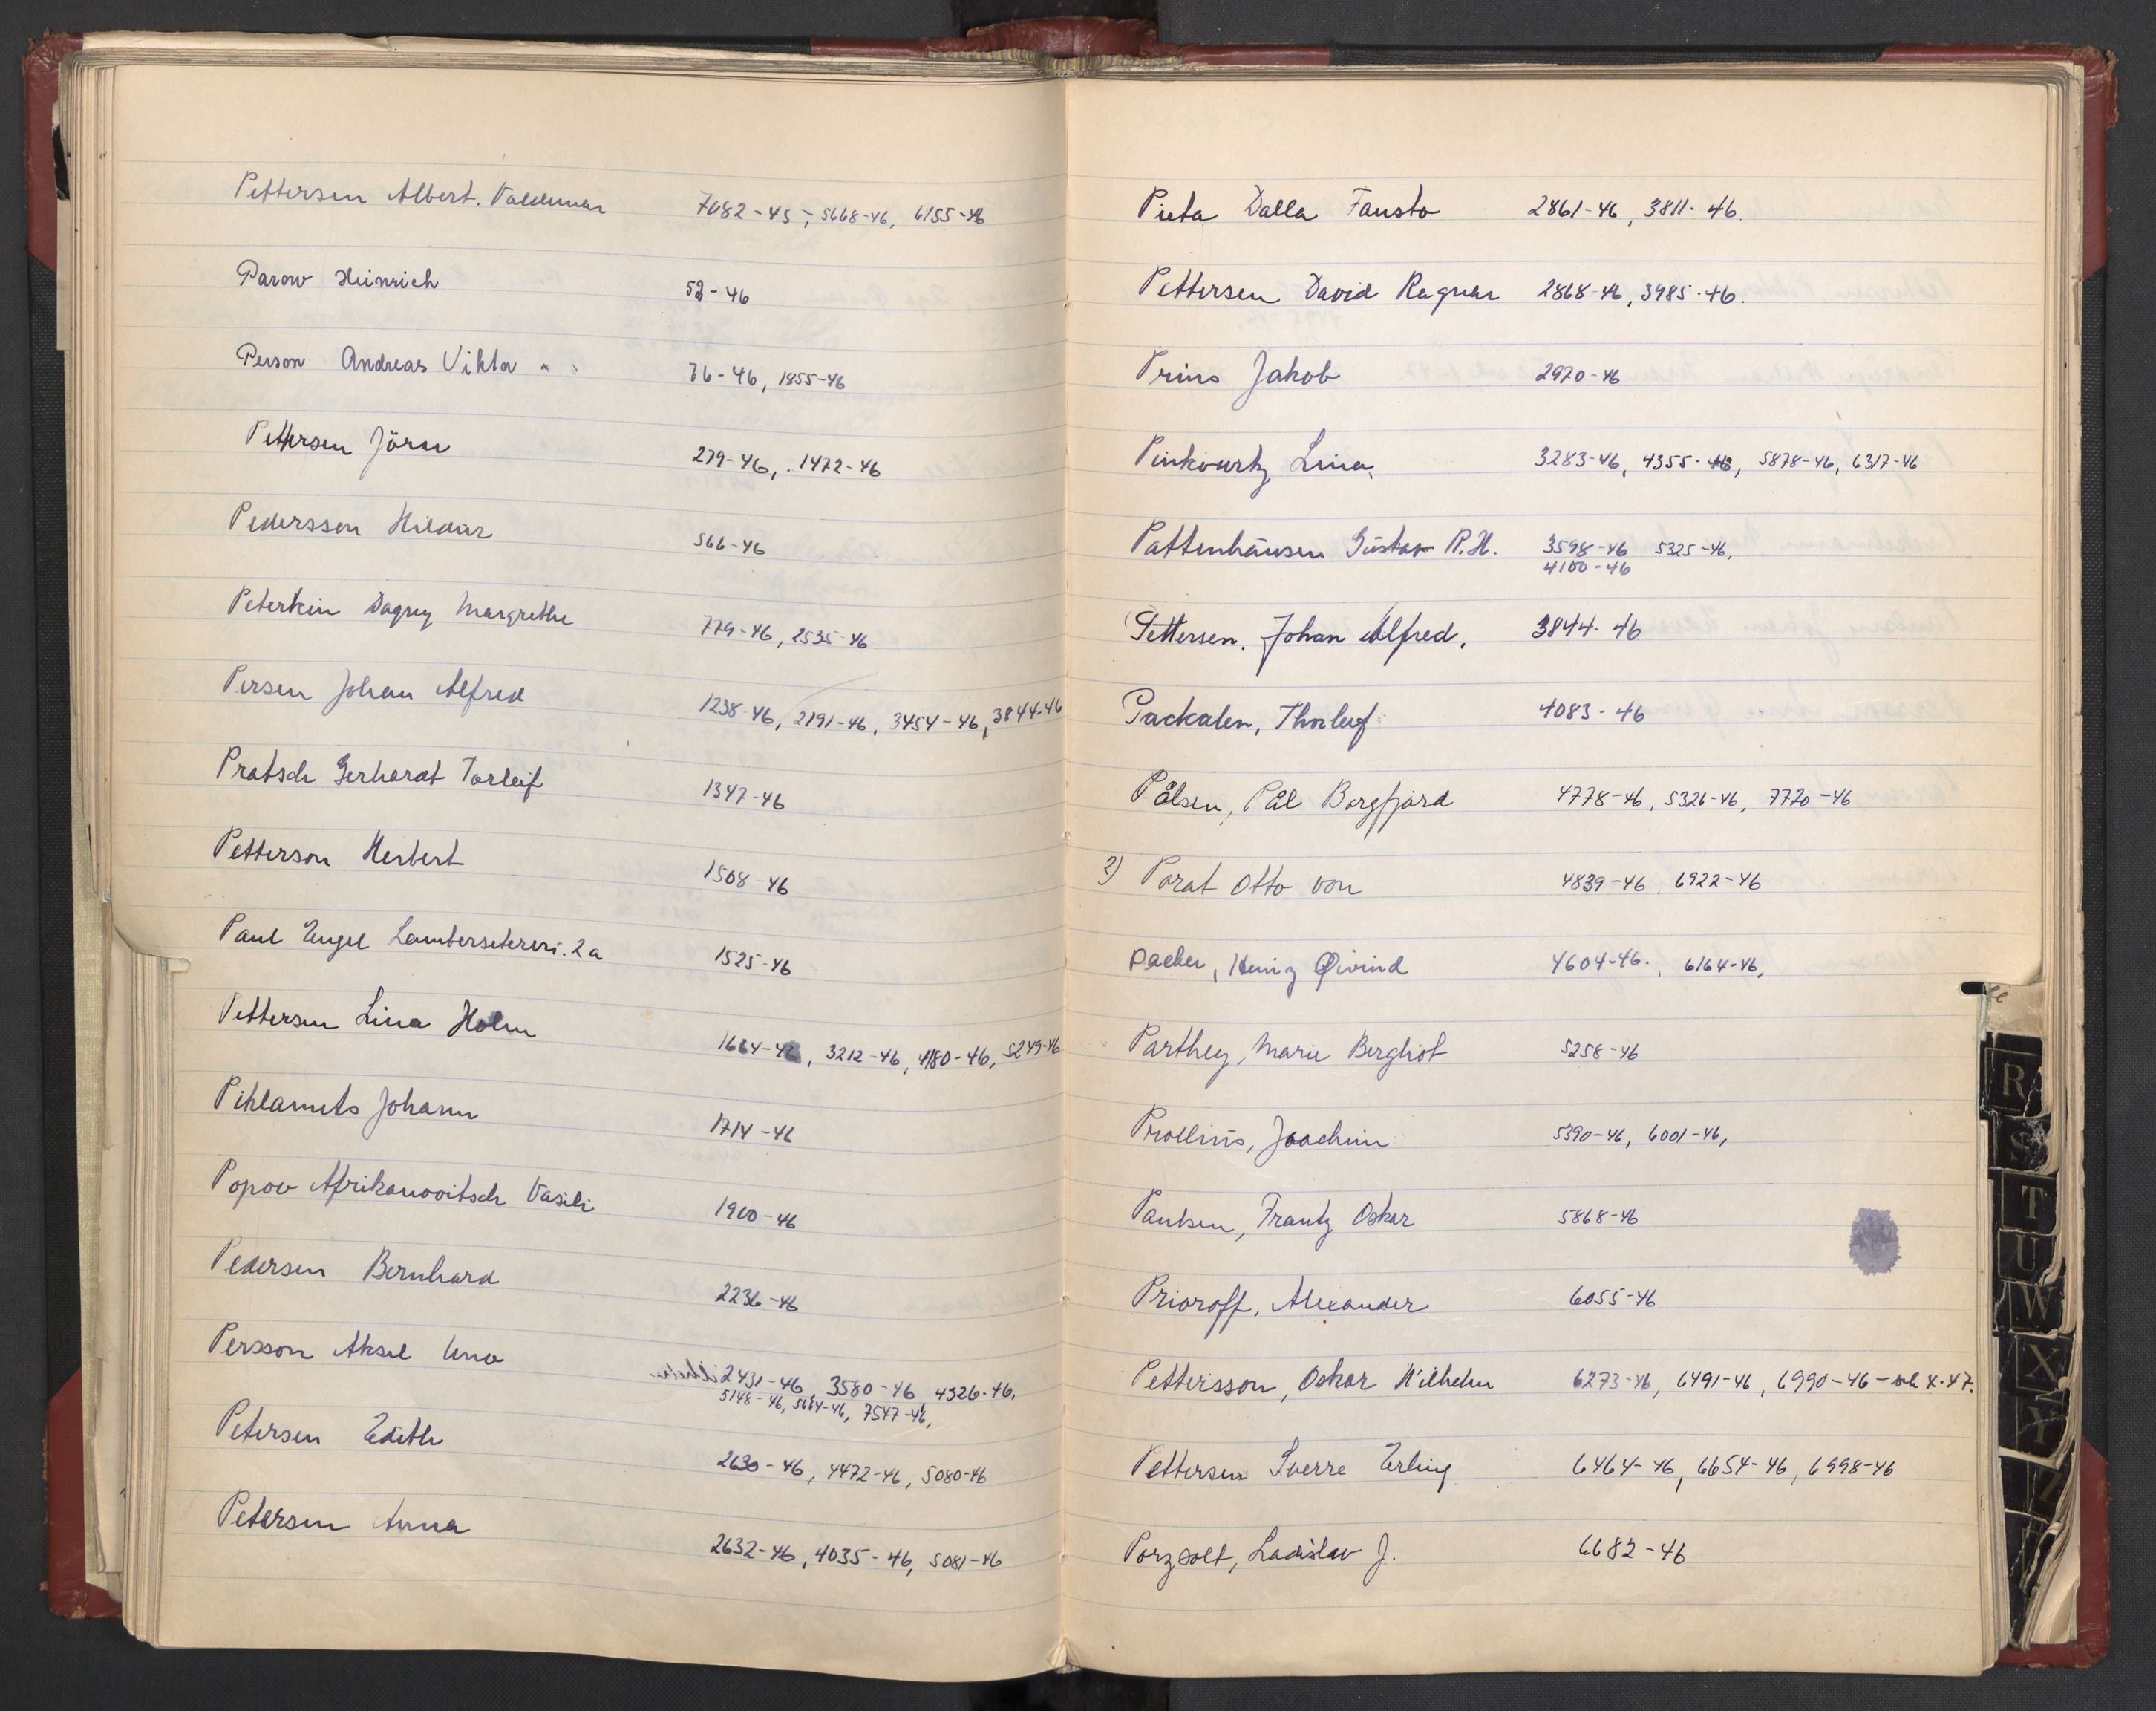 Pettersen Albert. Valdemar 7082-45, 5668-46, 6155-46
Parow Heinrich 52-46
Person Andreas Viktor 76-46, 1855-46
Pettersen Jörn 279-46, 1472-46
Pedersson Hildur 566-46
Peterkin Dagny Margrethe 779-46, 2535-46
Persen Johan Alfred 1238-46, 2191-46, 3454-46, 3844-46
Pratsch Gerhardt Torleif 1347-46
Petterson Herbert 1508-46
Paul Engel Lambersetervn. 2a 1525-46
Pettersen Lina Holm 1664-46, 3212-46, 4180-46, 5249-46
Pihlamets Johann 1714-46
Popov Afrikanovitsch Vasili 1900-46
Pedersen Bernhard 2236-46
Persson Aksel Uno 2431-46, 3580-46 4326-46,
5148-46, 5664-46, 7547-46,
Petersen Edith 2630-46, 4472-46, 5080-46
Petersen Anna 2632-46, 4035-46, 5081-46
Pieta Dalla Fausto 2861-46, 3811-46.
Pettersen David Ragnar 2868-46, 3985-46.
Prins Jakob 2970-46
Lina 3283-46, 4355-46, 5878-46, 6317-46
Pattenhausen Gustav R.H. 3598-46 5325-46,
4100-46
Pettersen. Johan Alfred. 3844-46
Packalen, Thorleif 4083-46
Pålsen, Pål Borgfjord 4778-46, 5326-46, 7770-46
2) Porat Otto von 4839-46, 6922-46
Pacher, Heinz Øivind 4604-46., 6164-46,
Parthey, Marie Bergliot 5258-46
Prollius, Joachim 5390-46, 6001-46,
Paulsen, Frantz Oskar 5868-46
Prioroff, Alexander 6055-46
Pettersson, Oskar Wilhelm 6273-46, 6491-46, 6990-46 - X-47.
Pettersen Sverre Erling 6464-46, 6654-46, 6998-46
Porzsolt, Ladislav J. 6682-46
R
S
T
U
W
X
Y
Z